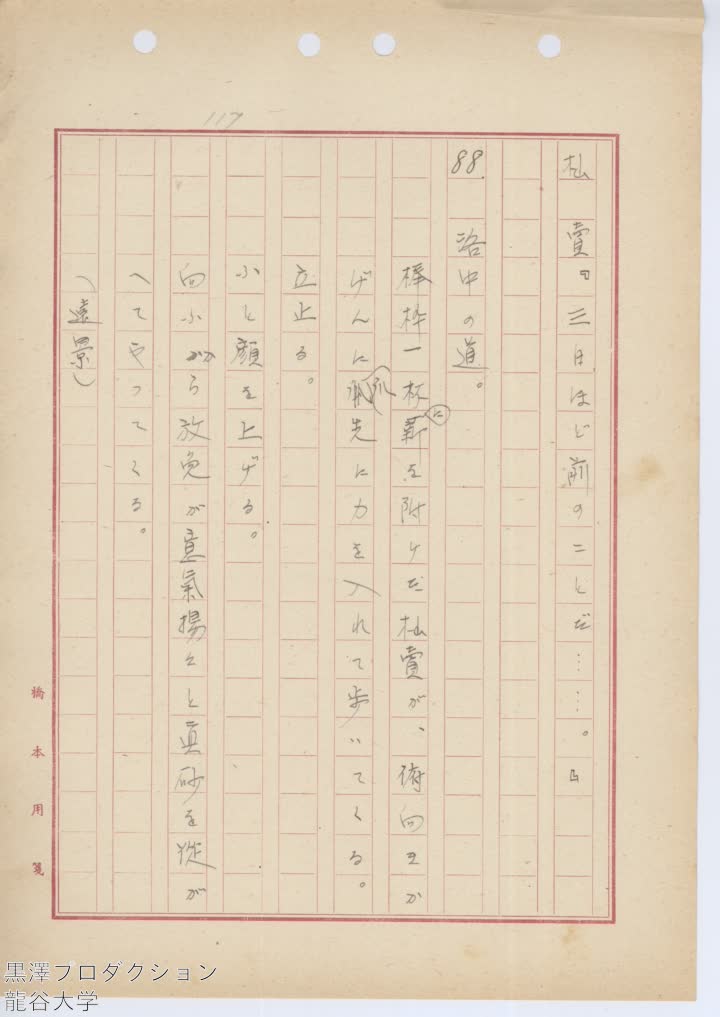 117
杣賣『三日ほど前のことだ……。』
88.
洛中の道。
棒枠一杯に薪を附けた杣賣が、俯向きか
げんに爪先に力を入れて歩いてくる。
立止る。
ふと顔を上げる。
向ふから放免が意氣揚々と真砂を從が
へてやってくる。
(遠景)
橋本用箋
黒澤プロダクション
龍谷大学